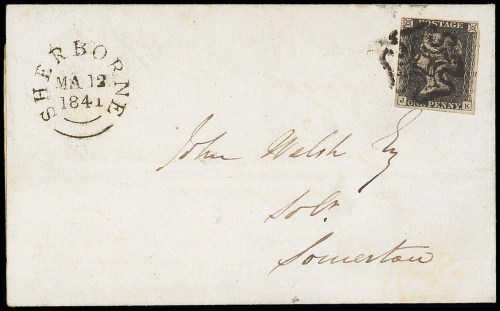 SHERBORNE
MA 12
1841
POSTAGE
J ONE PENNY K
John Walsh Esq
Solr
Somerton